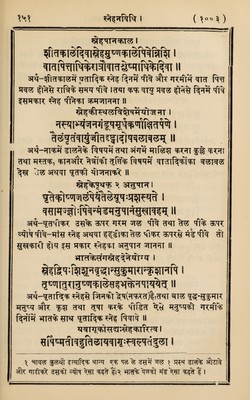 १५१ स्नेहनविधि । ( १००३ )
स्नेहपानकाल ।
शीतकालेदिवास्नेहमुष्णकालेपिबेन्निशि ।
वातपित्ताधिकेरात्रौवातश्लेष्माधिकेदिवा ॥
अर्थ-शीतकालमें घृतादिक स्नेह दिनमें पीवे और गरमीमें वात पित्त
प्रबल होनेसे रात्रिके समय पीवे तथा कफ वायु प्रबल होनेसे दिनमें पीवे
इसप्रकार स्नेह पीनेका क्रमजानना ॥
स्नेहकीस्थलविशेषमेंयोजना ।
नस्याभ्यंजनगंडूषमूर्धकर्णाक्षितर्पणे ।
तैलंघृतंवायुंजीतदृष्ट्वादोषबलाबलम् ॥
अर्थ-नाकमें डालनेके विषयमें तथा अंगमें मालिश करना कुल्ले करना
तथा मस्तक, कानऔर नेत्रोंकी तृप्तिके विषयमें वातादिदोषोंका बलाबल
देख तेल अथवा घृतकी योजनाकरे ॥
स्नेहकेपृथक् २ अनुपान ।
घृतेकोष्णंजलंपेयंतैलेयूषःप्रशस्यते ।
वसामज्ज्ञोःपिबेन्मंडमनुपानंसुखावहम् ॥
अर्थ-घृतपीकर उसके ऊपर गरम जल पीवे तथा तेल पीके ऊपर
यूषपीवे-मांस स्नेह अथवा हड्डीका तेल पीकर ऊपरसे मंड पीवे तो
सुखकारी होय इस प्रकार स्नेहका अनुपान जानना ॥
भातकेसंगस्नेहदेनेयोग्य ।
स्नेहद्विषःशिशून्वृद्धान्सुकुमारान्कृशानपि ।
तृष्णातुरानुष्णकालेसहभक्तेनपाययेत् ।
अर्थ-घृतादिक स्नेहसे जिनको द्वेष(नफरत)है.तथा बाल वृद्ध-सुकुमार
मनुष्य और कृश तथा तृषा करके पीडित ऐसे मनुष्यको गरमीके
दिनोंमें भातके साथ घृतादिक स्नेह पिवावे ॥
यवागूकोसद्यःस्नेहकारित्व ।
सर्पिष्मतीबहुतिलायवागूःस्वल्पतंदुला ।
१ चावल कुलथी इत्यादिक धान्य एक पल ले उसमें जल १ प्रस्थ डालके औटावे
और गाढीकरे उसको यूष ऐसा कहते हैं २ भातके पेजको मंड ऐसा कहते हैं.